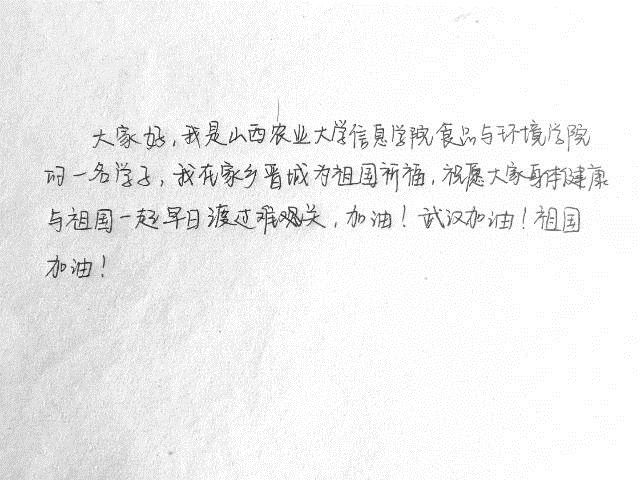 大家好，我是山西农业大学信息学院食品与环境学院
的一名学子，我在家乡晋城为祖国祈福，祝愿大家身体健康
与祖国一起早日渡过难关，加油！武汉加油！祖国
加油！